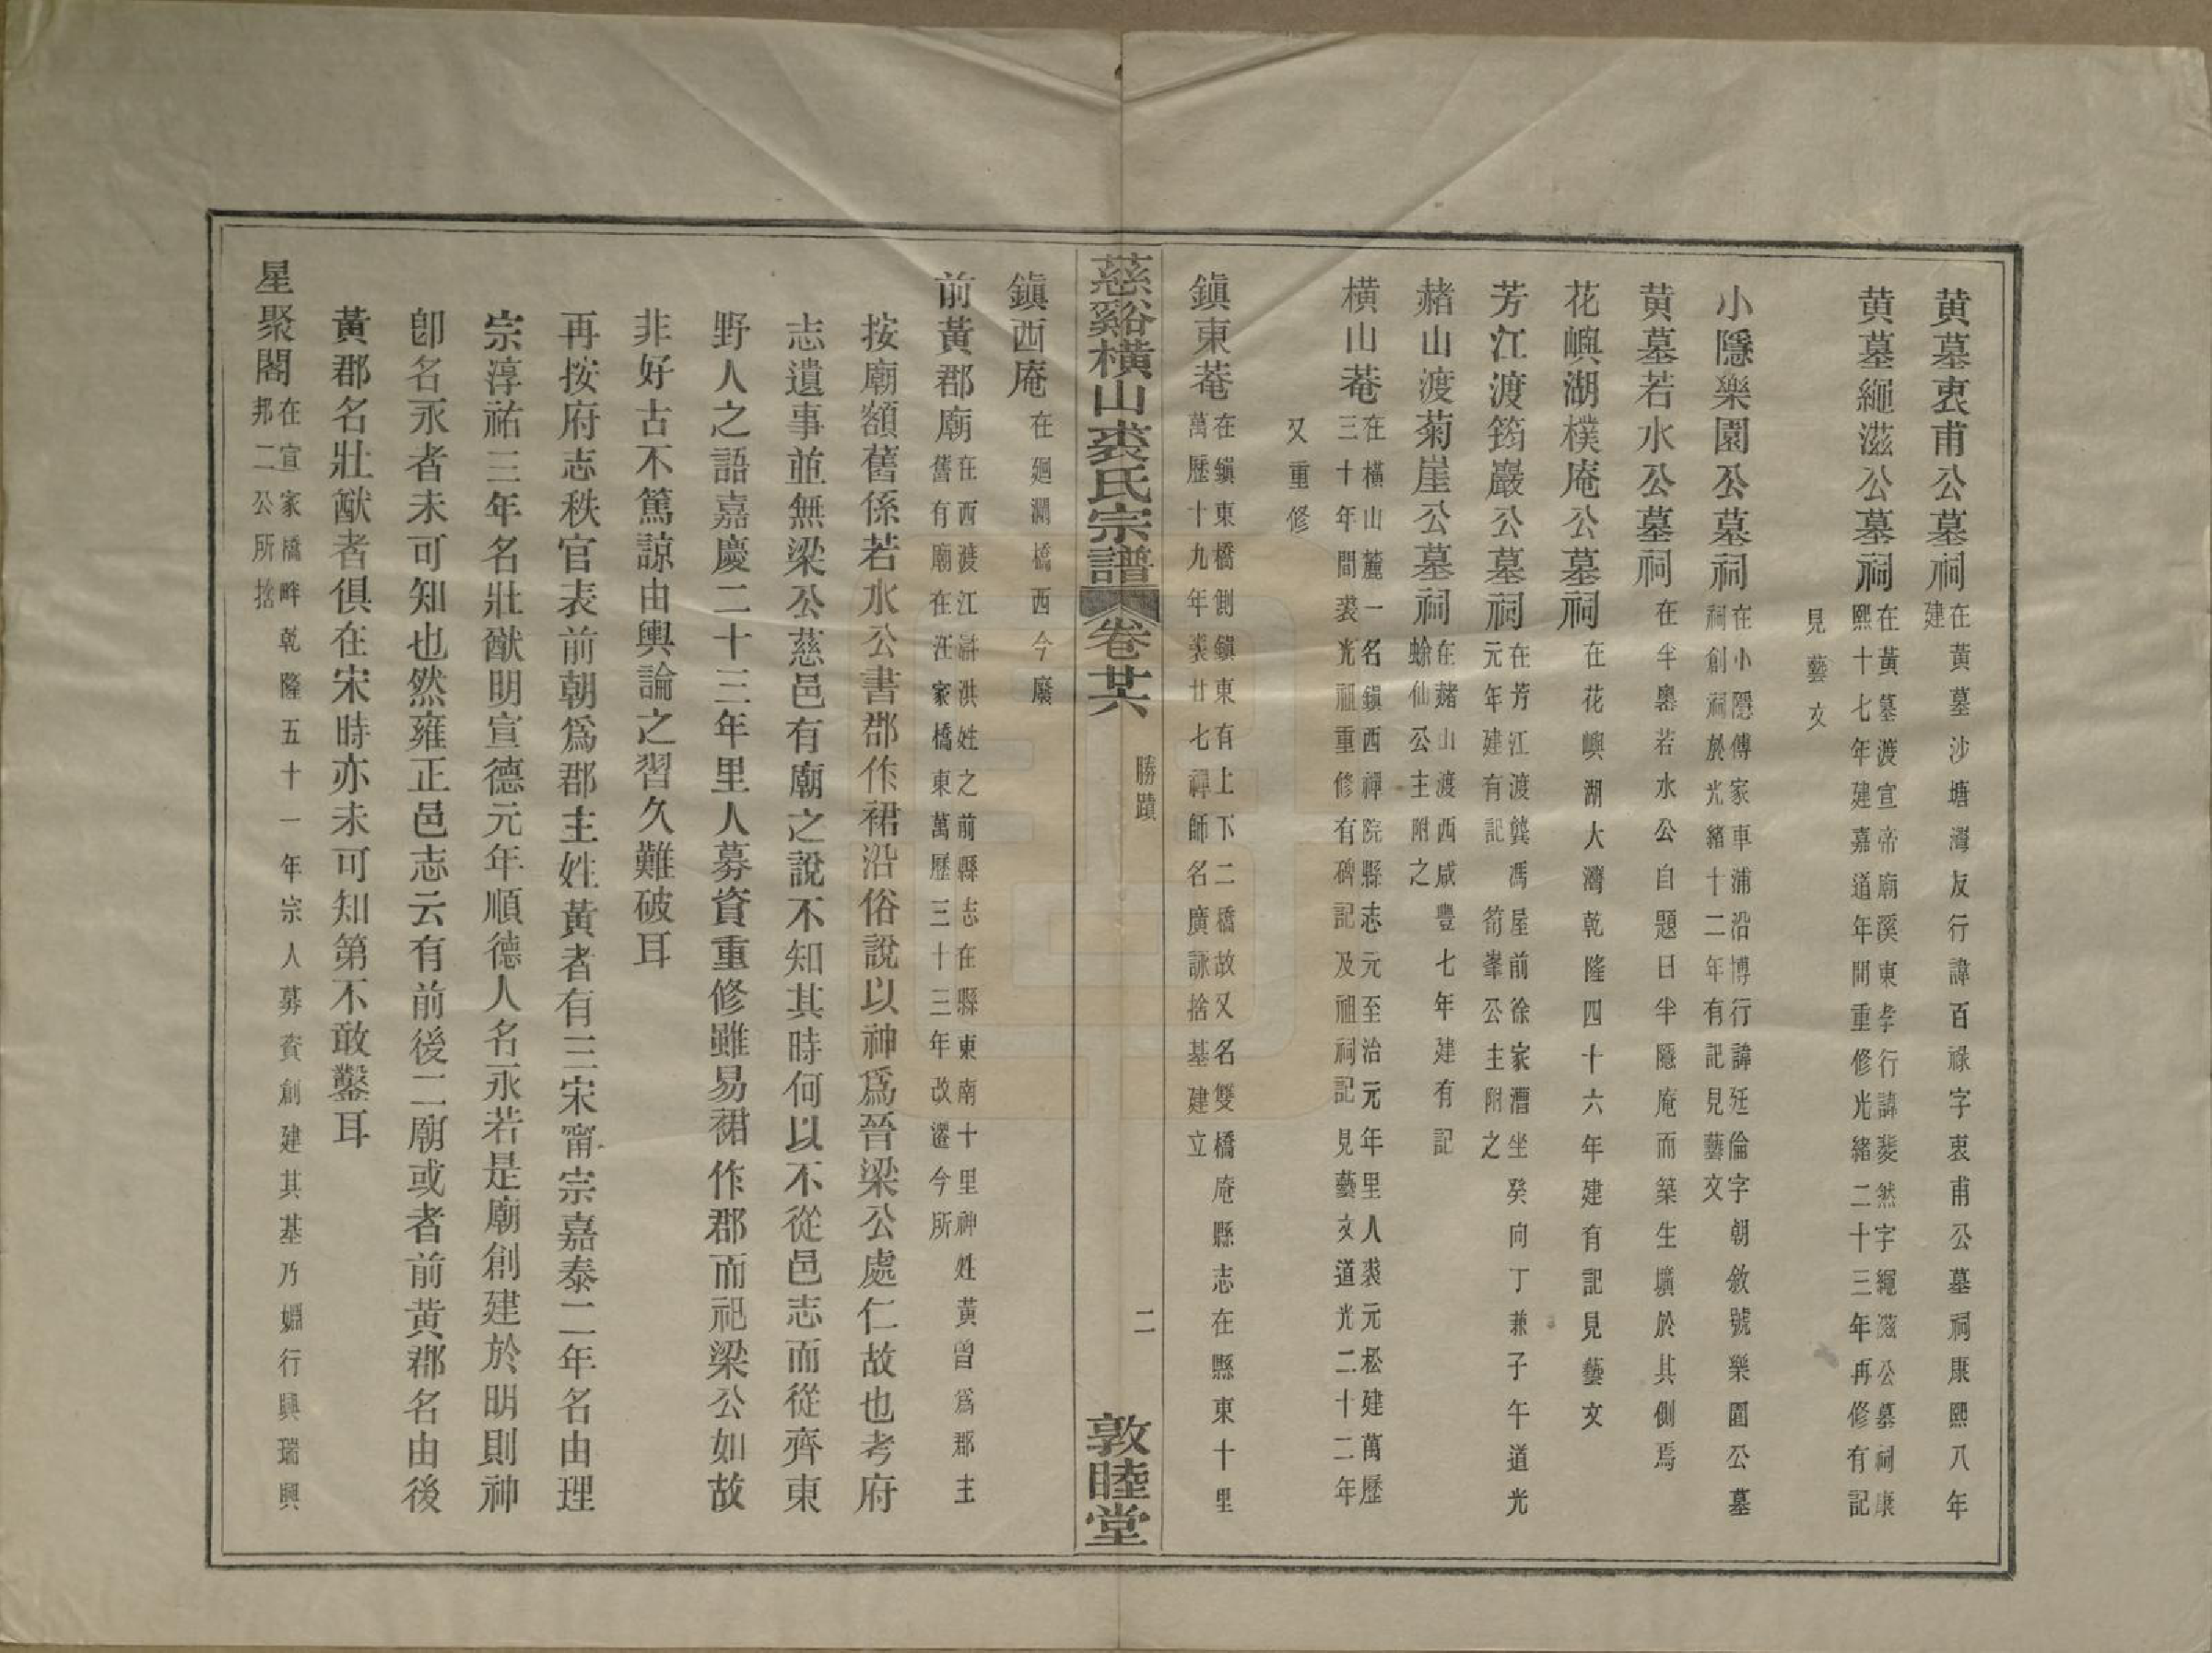 黄墓衷甫公墓祠在黄墓沙塘灣友行諱百祿字衷甫公墓祠康熙八年建
黄墓繩滋公墓祠在黃墓渡宣帝廟溪東孝行諱菼然字繩滋公墓祠康熙十七年建嘉道年間重修光緒二十三年再修有記
見藝文
小隱樂園公墓祠在小隱傅家車浦沿博行諱廷倫字朝敘號樂園公墓祠創祠於光緒十二年有記見藝文
黄墓若水公墓祠在半奧若水公自題曰半隱庵而築生壙於其側焉
花嶼湖樸庵公墓祠在花嶼湖大灣乾隆四十六年建有記見藝文
芳江渡筠巖公墓祠在芳江渡龔馮屋前徐家漕坐癸向丁兼子午道光元年建有記　筍峯公主附之
赭山渡菊崖公墓祠在赭山渡西咸豐七年建有記蜍仙公主附之
橫山菴在橫山麓一名鎭西禪院縣志元至治元年里人裘元松建萬歷三十年間裘光祖重修有碑記及祖祠記見藝文道光二十二年
又重修
鎭東菴在鎭東橋側鎭東有上下二橋故又名雙橋庵縣志在縣東十里萬歷十九年裘廿七禪師名廣詠捨基建立
慈谿橫山裘氏宗譜　卷廿六　勝蹟　二　敦睦堂
鎭西庵在廻瀾橋西今廢
前黃郡廟在西渡江滸洪姓之前縣志在縣東南十里神姓黃曾爲郡主舊有廟在汪家橋東萬歷三十三年改遷今所
按廟額舊係若水公書郡作裙沿俗說以神爲晉梁公處仁故也考府
志遺事並無梁公慈邑有廟之說不知其時何以不從邑志而從齊東
野人之語嘉慶二十三年里人募資重修雖易裙作郡而祀梁公如故
非好古不篤諒由輿論之習久難破耳
再按府志秩官表前朝爲郡主姓黃者有三宋甯宗嘉泰二年名由理
宗淳祐三年名壯猷明宣德元年順德人名永若是廟創建於明則神
卽名永者未可知也然雍正邑志云有前後二廟或者前黃郡名由後
黃郡名壯猷者俱在宋時亦未可知第不敢鑿耳
星聚閣在宣家橋畔乾隆五十一年宗人募資創建其基乃嫺行興瑞興邦二公所捨